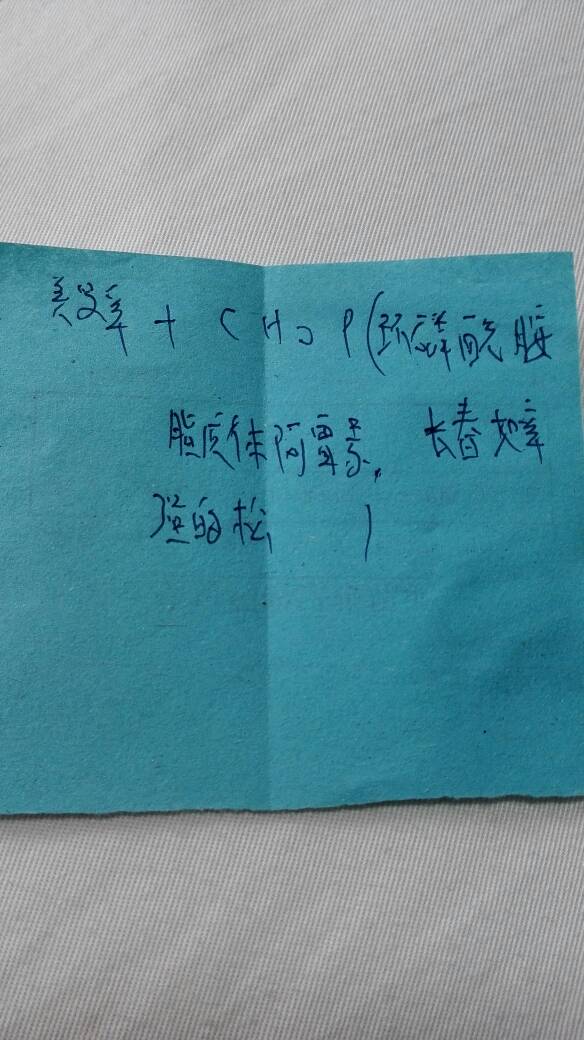 美罗华 + CHOP(环磷酰胺
脂质体阿霉素, 长春如辛
强的松 )